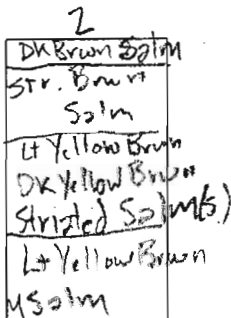 2
DK Brwn Salm
Str. Brwn
Salm
Lt Yellow Brwn
DK Yellow Brwn
Striated Salm(s)
Lt Yellow Brwn
MSalm